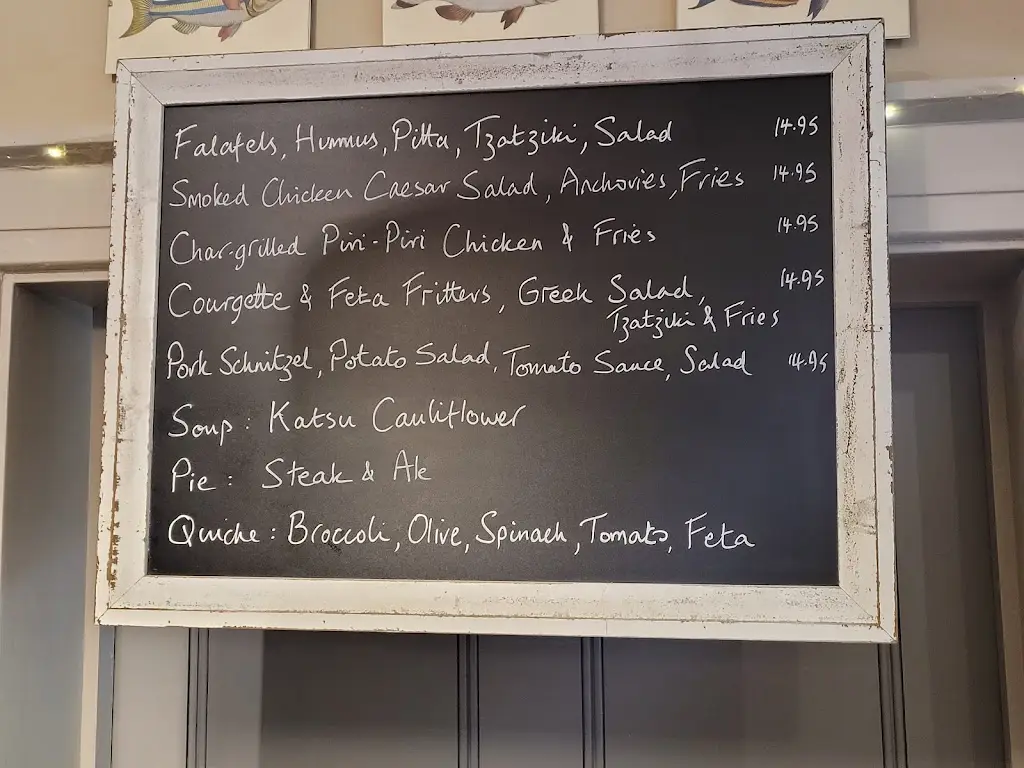 Falafels, Hummus, Pitta, Tzatziki, Salad 14.95
Smoked Chicken Caesar Salad, Anchovies, Fries 14.95
Char-grilled Piri-Piri Chicken & Fries 14.95
Courgette & Feta Fritters, Greek Salad, 14.95
Tzatziki & Fries
Pork Schnitzel, Potato Salad, Tomato Sauce, Salad 14.95
Soup: Katsu Cauliflower
Pie: Steak & Ale
Quiche: Broccoli, Olive, Spinach, Tomato, Feta